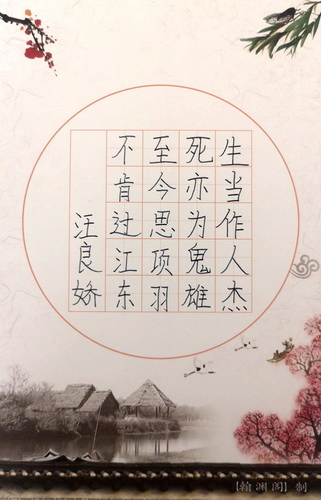 生当作人杰
死亦为鬼雄
至今思项羽
不肯过江东
汪良娇
【翰渊阁】制